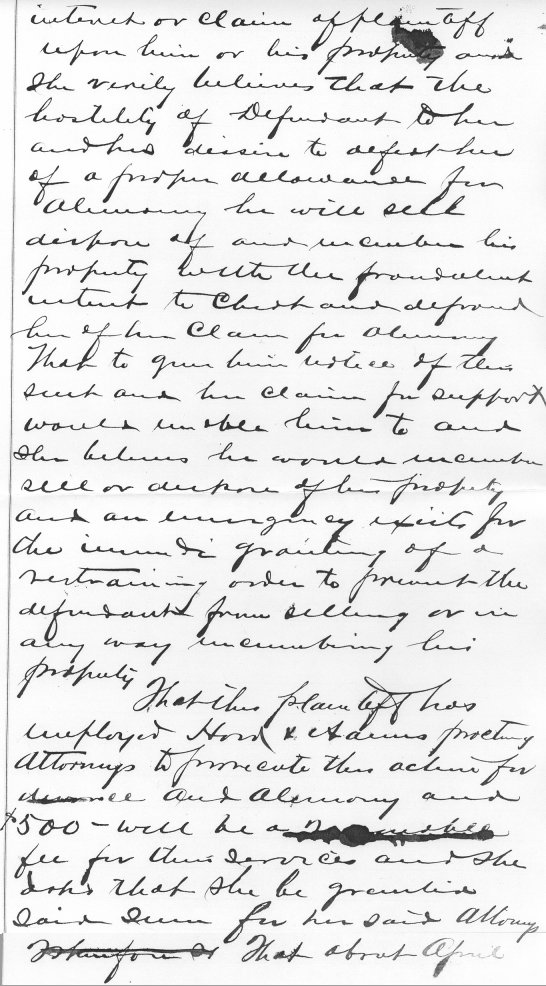 interest or claim of plaintiff
upon him or his property and
she verily believes that the
hostility of Defendant to her
and his dissire to defeat her
of a proper allowance for
Alimony he will sell
dispose of and incumber his
property with the fraudulent
intent to Cheat and defraud
her of her Claim for Alimony
That to give him notice of this
suit and her claim for support
would enable him to and
she believes he would incumber
sell or dispose of his property
and an emergency exists for
the immedi granting of a
restraining order to prevent the
defendant from selling or in
any way incumbering his
property
That this plaintiff has
employed Hord & Adams practing
Attorneys to prosecute this action for
divorce and Alimony and
$500 - will be a
fee for their services and she
asks that she be granted
said sum for her said Attorneys
Wherefore s That about April